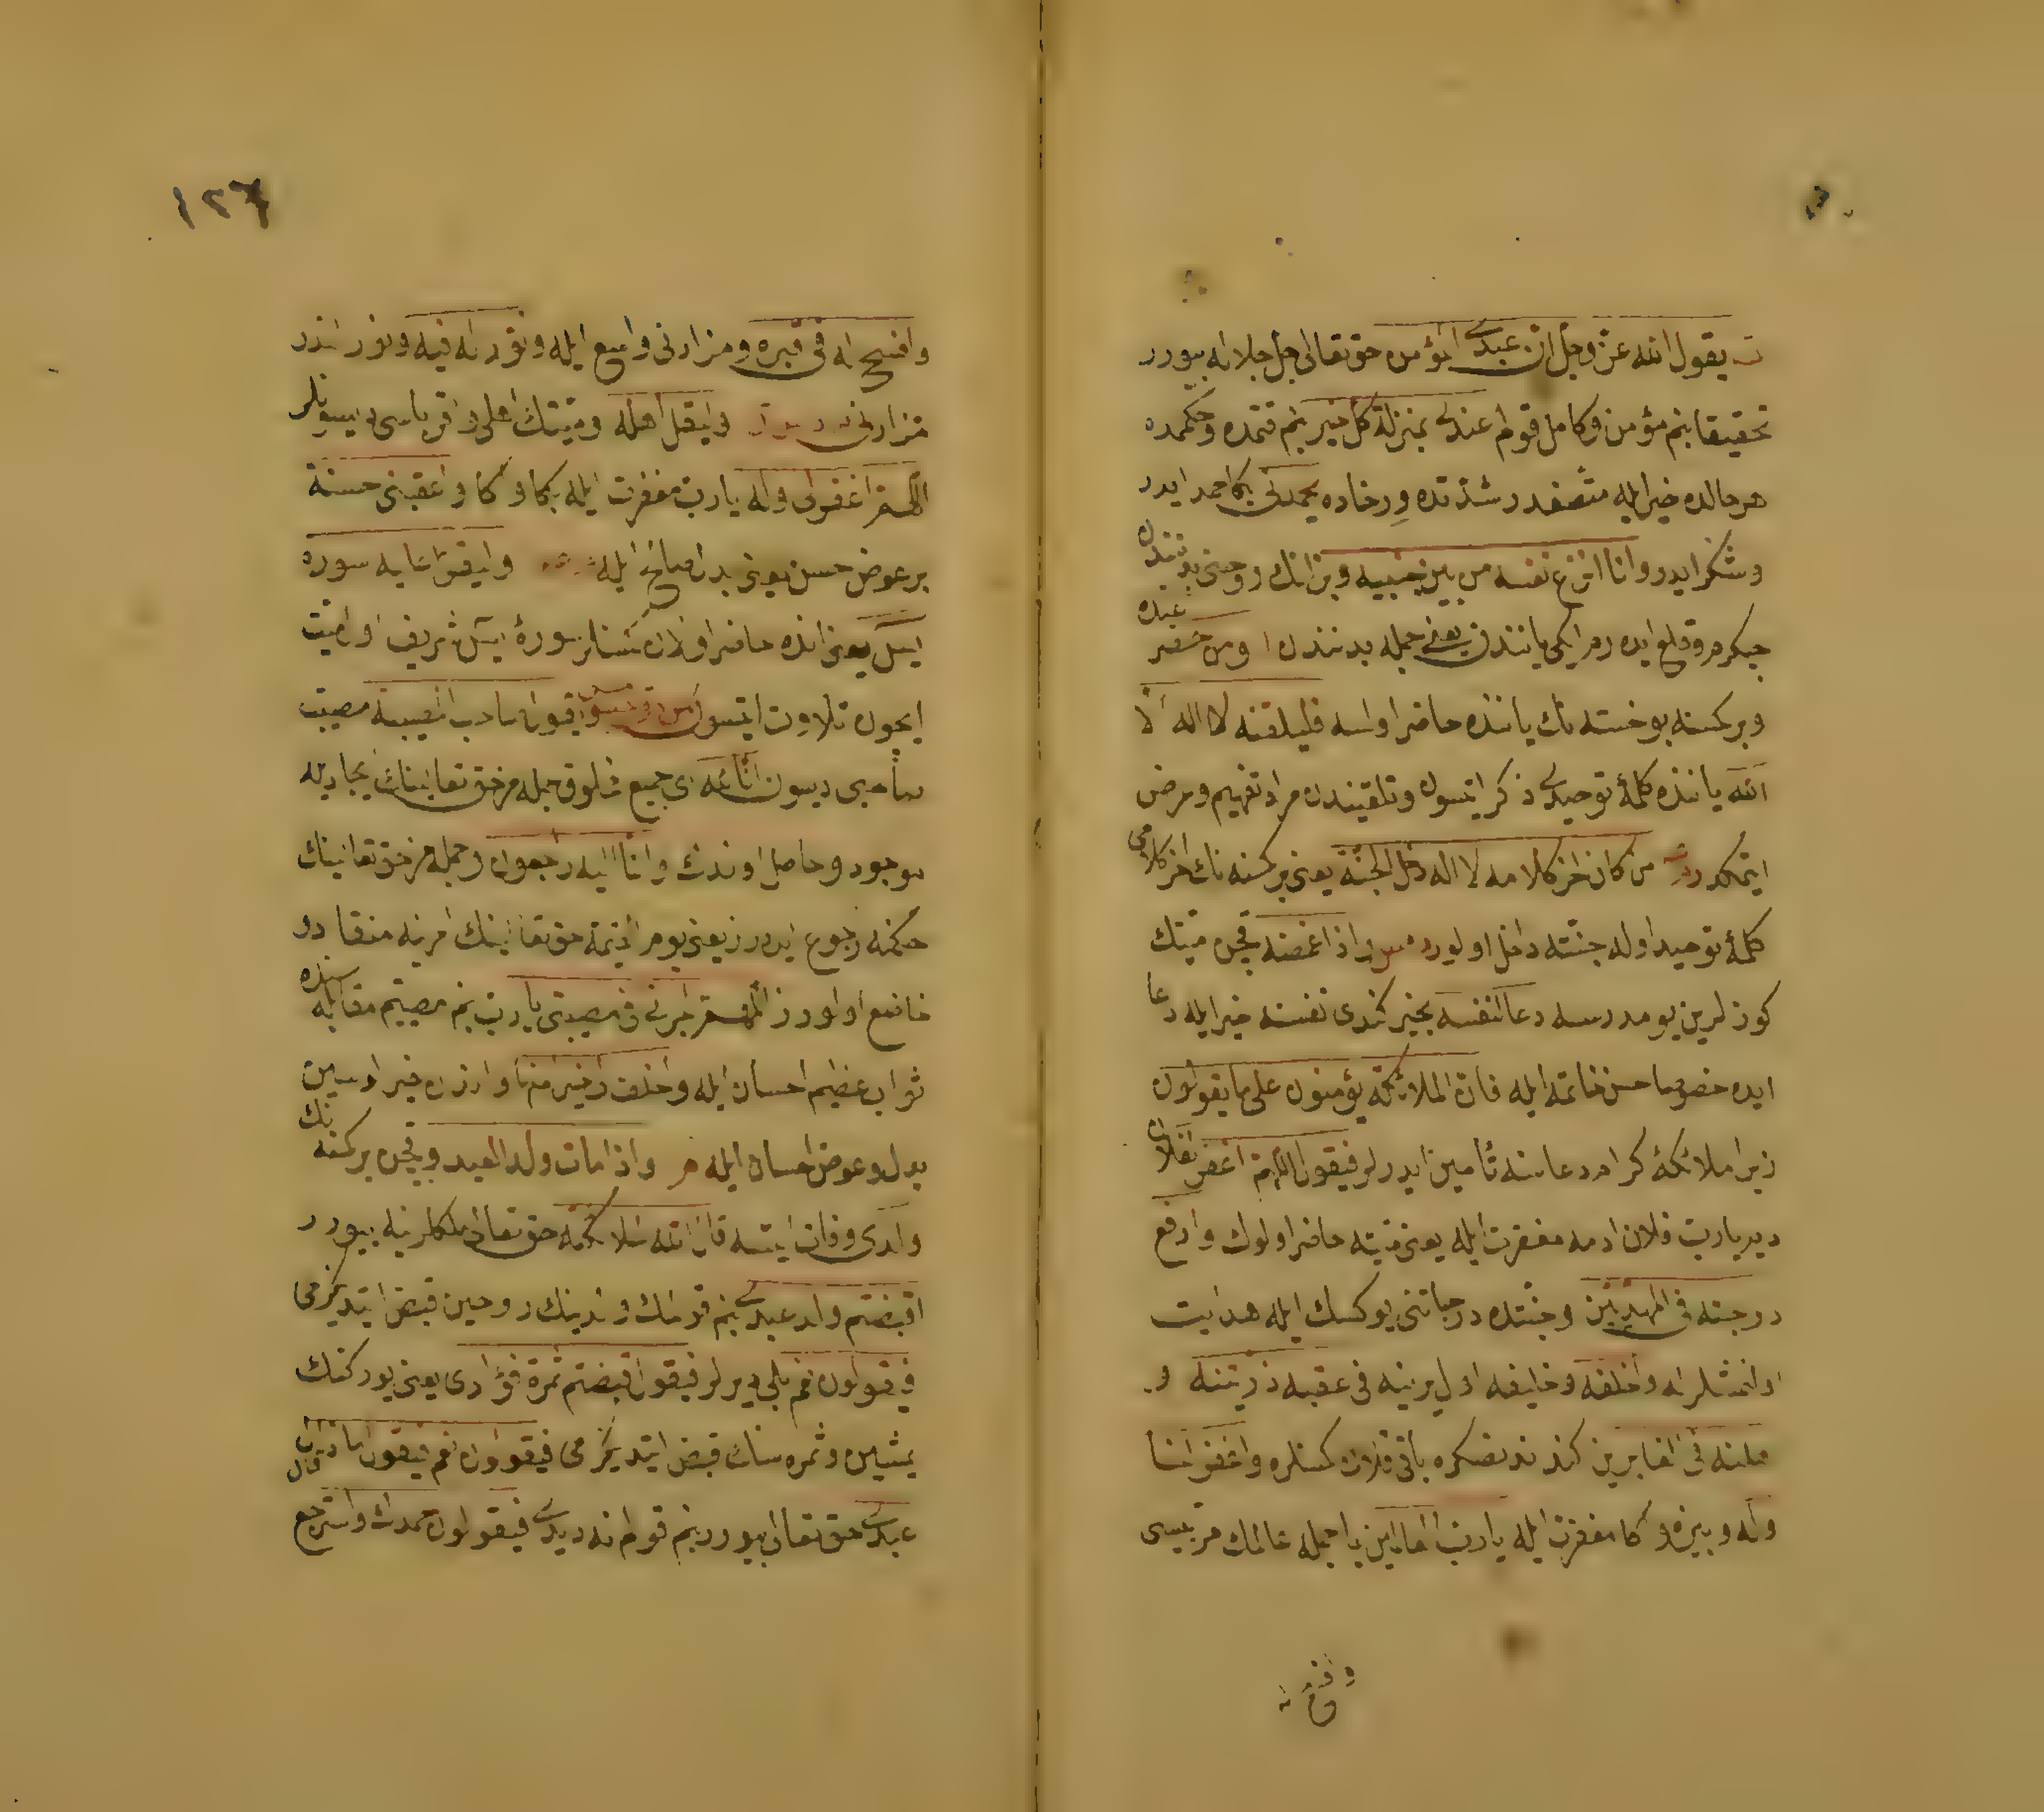 يقول الله عز وجل ان عبدى المؤمن حق تعالى جل جلاله بيورر
تحقيقا بنم مؤمن و كامل قولم عندى بمنزلة كل خير بنم قتمده و حكممده
هر حالده خير ايله متصفدر شدتده و رخاده يحمدنى بكا حمد ايدر
و شكر ايدر وانا انزع نفسه من بين جنبيه و بن انك روحنى بدنندن
ايكى ياننده يعنى جمله بدنندن ومن حضر عنده
و بر كمسنه بو خسته نك ياننده حاضر اولسه فليلقنه لا اله الا
الله ياننده كلمۀ توحيدى ذكر ايتسون و تلقيندن مراد تفهيم و عرض
ايتمكدر من كان اخر كلامه لا اله دخل الجنة يعنى بر كمسنه نك اخر كلامى
كلمۀ توحيد اوله جنته داخل اولور واذا غمضه قچن ميتك
كوزلرين يومدرسه دعا لنفسه بخير كندى نفسنه خير ايله دعا
ايده خصوصا حسن خاتمه ايله فان الملائكة يؤمنون على ما يقولون
زيرا ملائكۀ كرام دعاسنه تأمين ايدرلر فيقول اللهم اغفر لفلان
دير يارب فلان ادمه مغفرت ايله يعنى ميته حاضر اولوك وارفع
درجته فى المهديين و جنتده درجاتنى يوكسك ايله هدايت
اولنمشلر اله واخلفه و خليفه اول يرينه فى عقبه ذريتنه و
فى الغابرين كندندنصكره باقى قلان كمسنلره واغفر لنا
وله و بيزه و اكا مغفرت ايله يارب العالمين يا جمله عالمك مربيسى
وافسح
١٢٦
وافسح له فى قبره و مزارنى واسع ايله ونور له فيه و نور اندر
مزارنى وليقل اهله و ميتك اهلى و اقرباسى ديسونلر
اللهم اغفر لى وله يارب مغفرت ايله بكا و اكا واعقبنى حسنة
بر عوض حسن يعنى بدل صالح ايله وليقرأ عليه سوره
يس يعنى انده حاضر اولان كمسنلر سورۀ يس شريف اول ميت
ايچون تلاوت ايتسون وليقول صاحب المصيبة مصيبت
صاحبى ديسون انا لله اى جميع مخلوق جمله مز حق تعالينك ايجاديله
موجود و حاصل اولدق وانا اليه راجعون و جمله مز حق تعالينك
حكمنه رجوع ايدرز يعنى يوم القيمة حق تعالينك امرينه منقاد و
خاضع اولورز اللهم اجرنى فى مصيبتى يارب بنم مصيبتم مقابله سنده
ثواب عظيم احسان ايله واخلف لى خيرا منها و اندن خير اولسين
بدل و عوض احسان ايله واذا مات ولد العبد و قچن بر كمسنه نك
ولدى وفات ايتسه قال الله لملائكته حق تعالى ملكلرينه بيورر
اقبضتم ولد عبدى بنم قولمك ولدينك روحين قبض ايتديكزمى
فيقولون نعم بلى ديرلر فيقول اقبضتم ثمرة فؤادى يعنى يوركنك
يمشين و ثمره سنك قبض ايتديكزمى فيقولون نعم فيقول ماذا قال
عبدى حق تعالى بيورر بنم قولم نه ديدى فيقولون حمدك واسترجع